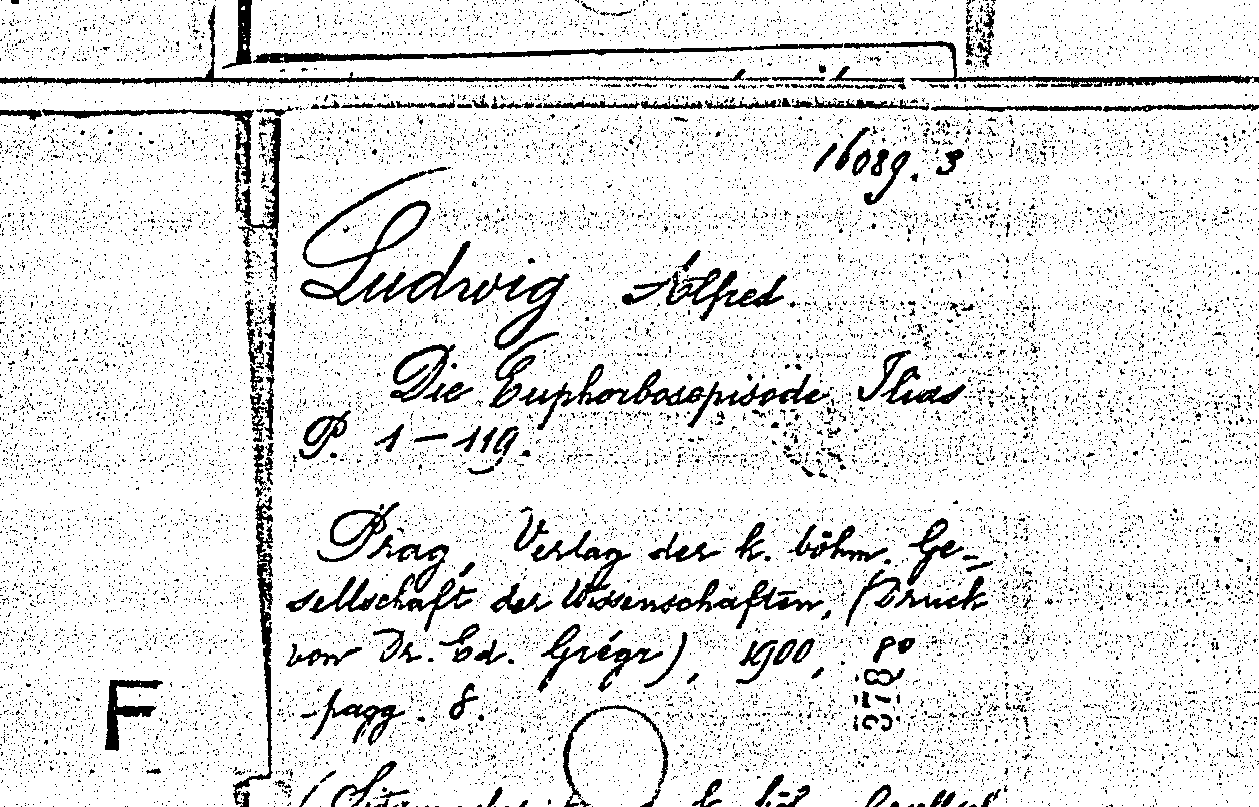 16089. 3
Ludwig Alfred.
Die Euphorbosepisode Ilias
P. 1—119.
Prag, Verlag der k. böhm. Ge-
sellschaft der Wissenschaften, (Druck
von Dr. Ed. Grégr), 1900, 8°
pagg. 8.
378
F